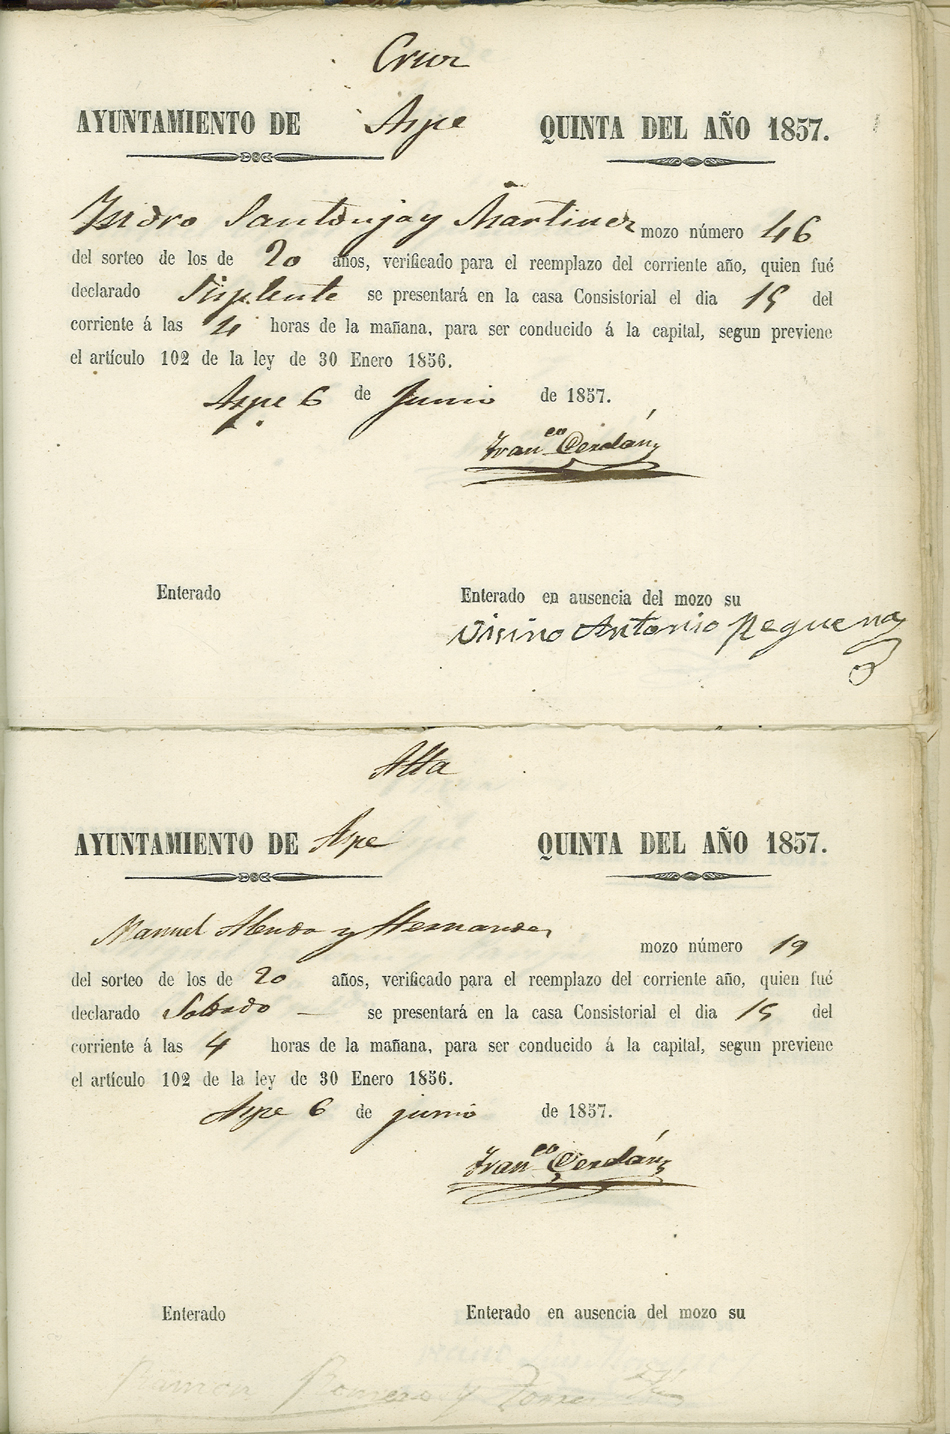 Cruz
AYUNTAMIENTO DE Aspe QUINTA DEL AÑO 1857.
Isidro Santonja y Martinez mozo número 46
del sorteo de los de 20 años, verificado para el reemplazo del corriente año, quien fué
declarado Suplente se presentará en la casa Consistorial el dia 15 del
corriente á las 4 horas de la mañana, para ser conducido á la capital, segun previene
el artículo 102 de la ley de 30 Enero 1856.
Aspe 6 de Junio de 1857.
Fran.co Cerdán
Enterado Enterado en ausencia del mozo su
Visino Antonio Requena
Alta
AYUNTAMIENTO DE Aspe QUINTA DEL AÑO 1857.
Manuel y Hernandez mozo número 19
del sorteo de los de 20 años, verificado para el reemplazo del corriente año, quien fué
declarado Soldado se presentará en la casa Consistorial el dia 15 del
corriente á las 4 horas de la mañana, para ser conducido á la capital, segun previene
el artículo 102 de la ley de 30 Enero 1856.
Aspe 6 de junio de 1857.
Fran.co Cerdán
Enterado Enterado en ausencia del mozo su
Ramon Romero y